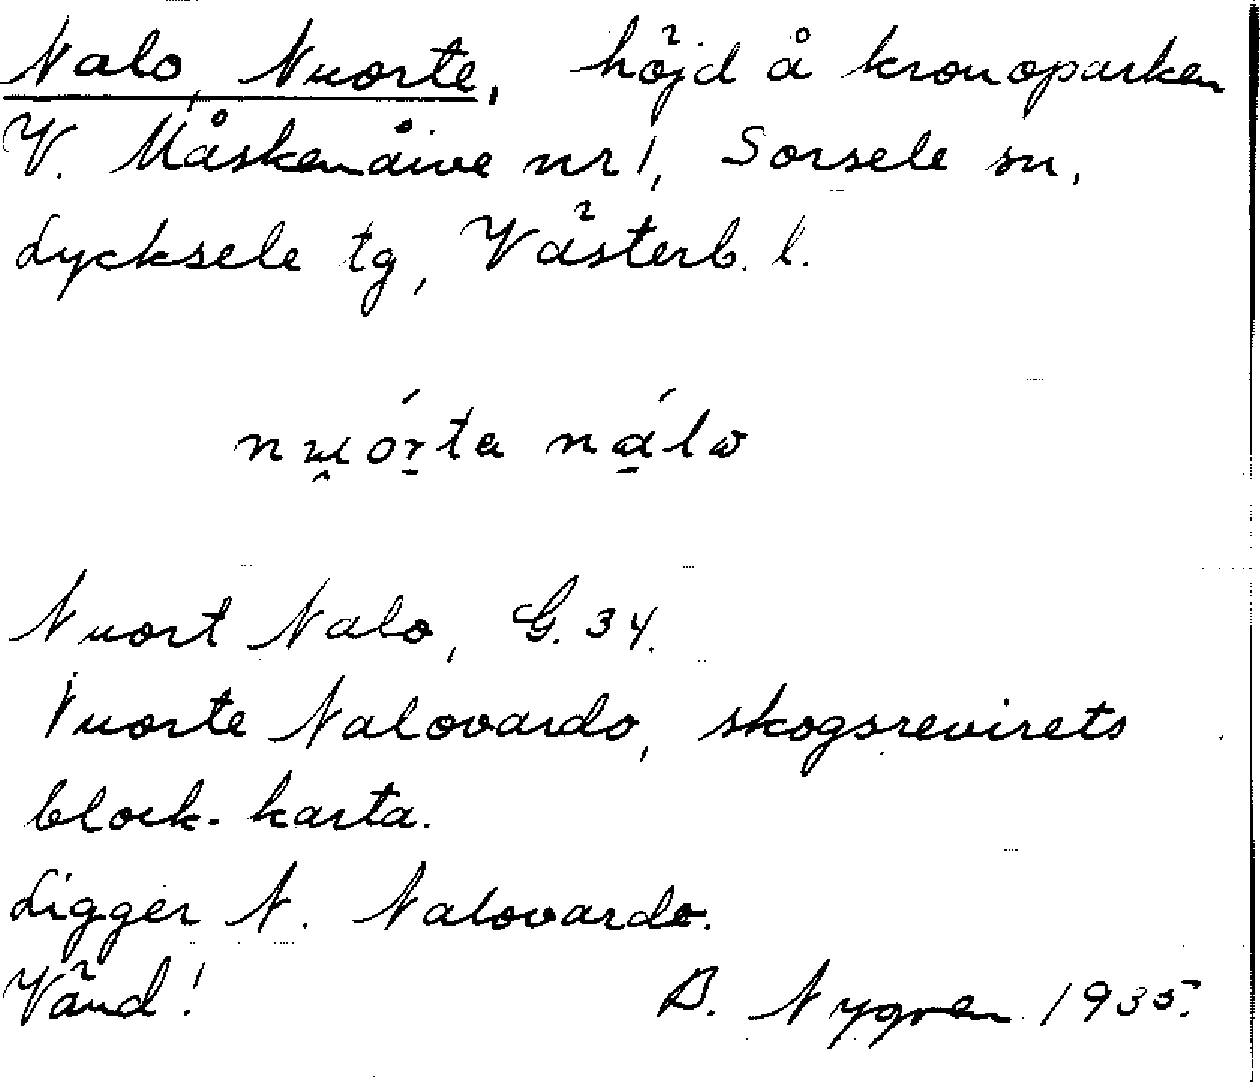 Nalo, Nuorte, höjd å kronoparken
V. Måskenåive nr 1, Sorsele sn,
Lycksele tg, Västerb. l.
nu̯órta nálo
Nuort Nalo, G. 34.
Nuorte Nalovardo, skogsrevirets
block-karta.
Ligger N. Nalovardo.
Vänd! B. Nygren 1935.